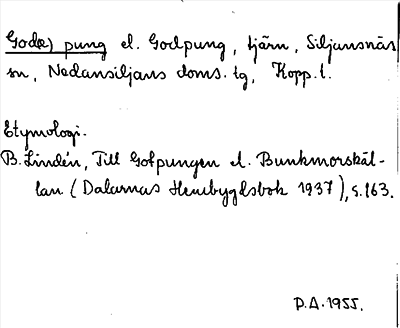 Goda) pung el. Godpung, tjärn, Siljansnäs
sn, Nedansiljans doms. tg, Kopp. l.
Etymologi.
B. Lindén, Till Gotpungen el. Bunkmorskäl-
lan (Dalarnas Hembygdsbok 1937), s. 163.
D.A. 1955.